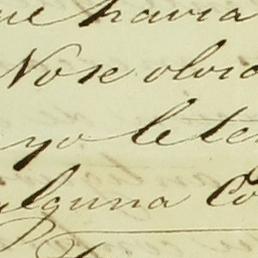 ue havia
No se olvid
yo le ten
alguna Co